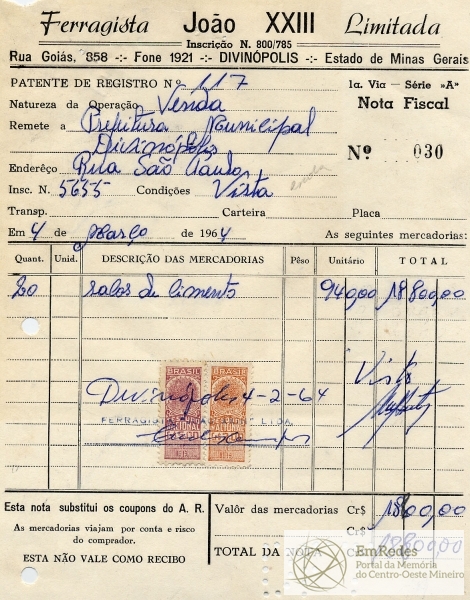 Ferragista João XXIII Limitada
Inscrição N. 800/785
Rua Goiás, 858 -:- Fone 1921 -:- DIVINÓPOLIS -:- Estado de Minas Gerais
PATENTE DE REGISTRO Nº 117
1a. Via — Série »A»
Natureza da Operação Venda
Nota Fiscal
Remete a Prefeitura Municipal
Divinópolis
Nº 030
Enderêço Rua São Paulo
Insc. N. 5655 Condições Vista
Transp. Carteira Placa
Em 4 de Março de 1964 As seguintes mercadorias:
Quant. Unid. DESCRIÇÃO DAS MERCADORIAS Pêso Unitário TOTAL
20 sacos de cimento 940,00 18.800,00
Visto
BRASIL BRASIL
Divinópolis 4-2-64
FERRAGISTA LTDA.
Esta nota substitui os coupons do A. R.
As mercadorias viajam por conta e risco
do comprador.
ESTA NÃO VALE COMO RECIBO
Valôr das mercadorias Cr$ 18.800,00
Cr$
TOTAL DA NOTA 18.800,00
EmRedes
Portal da Memória
do Centro-Oeste Mineiro